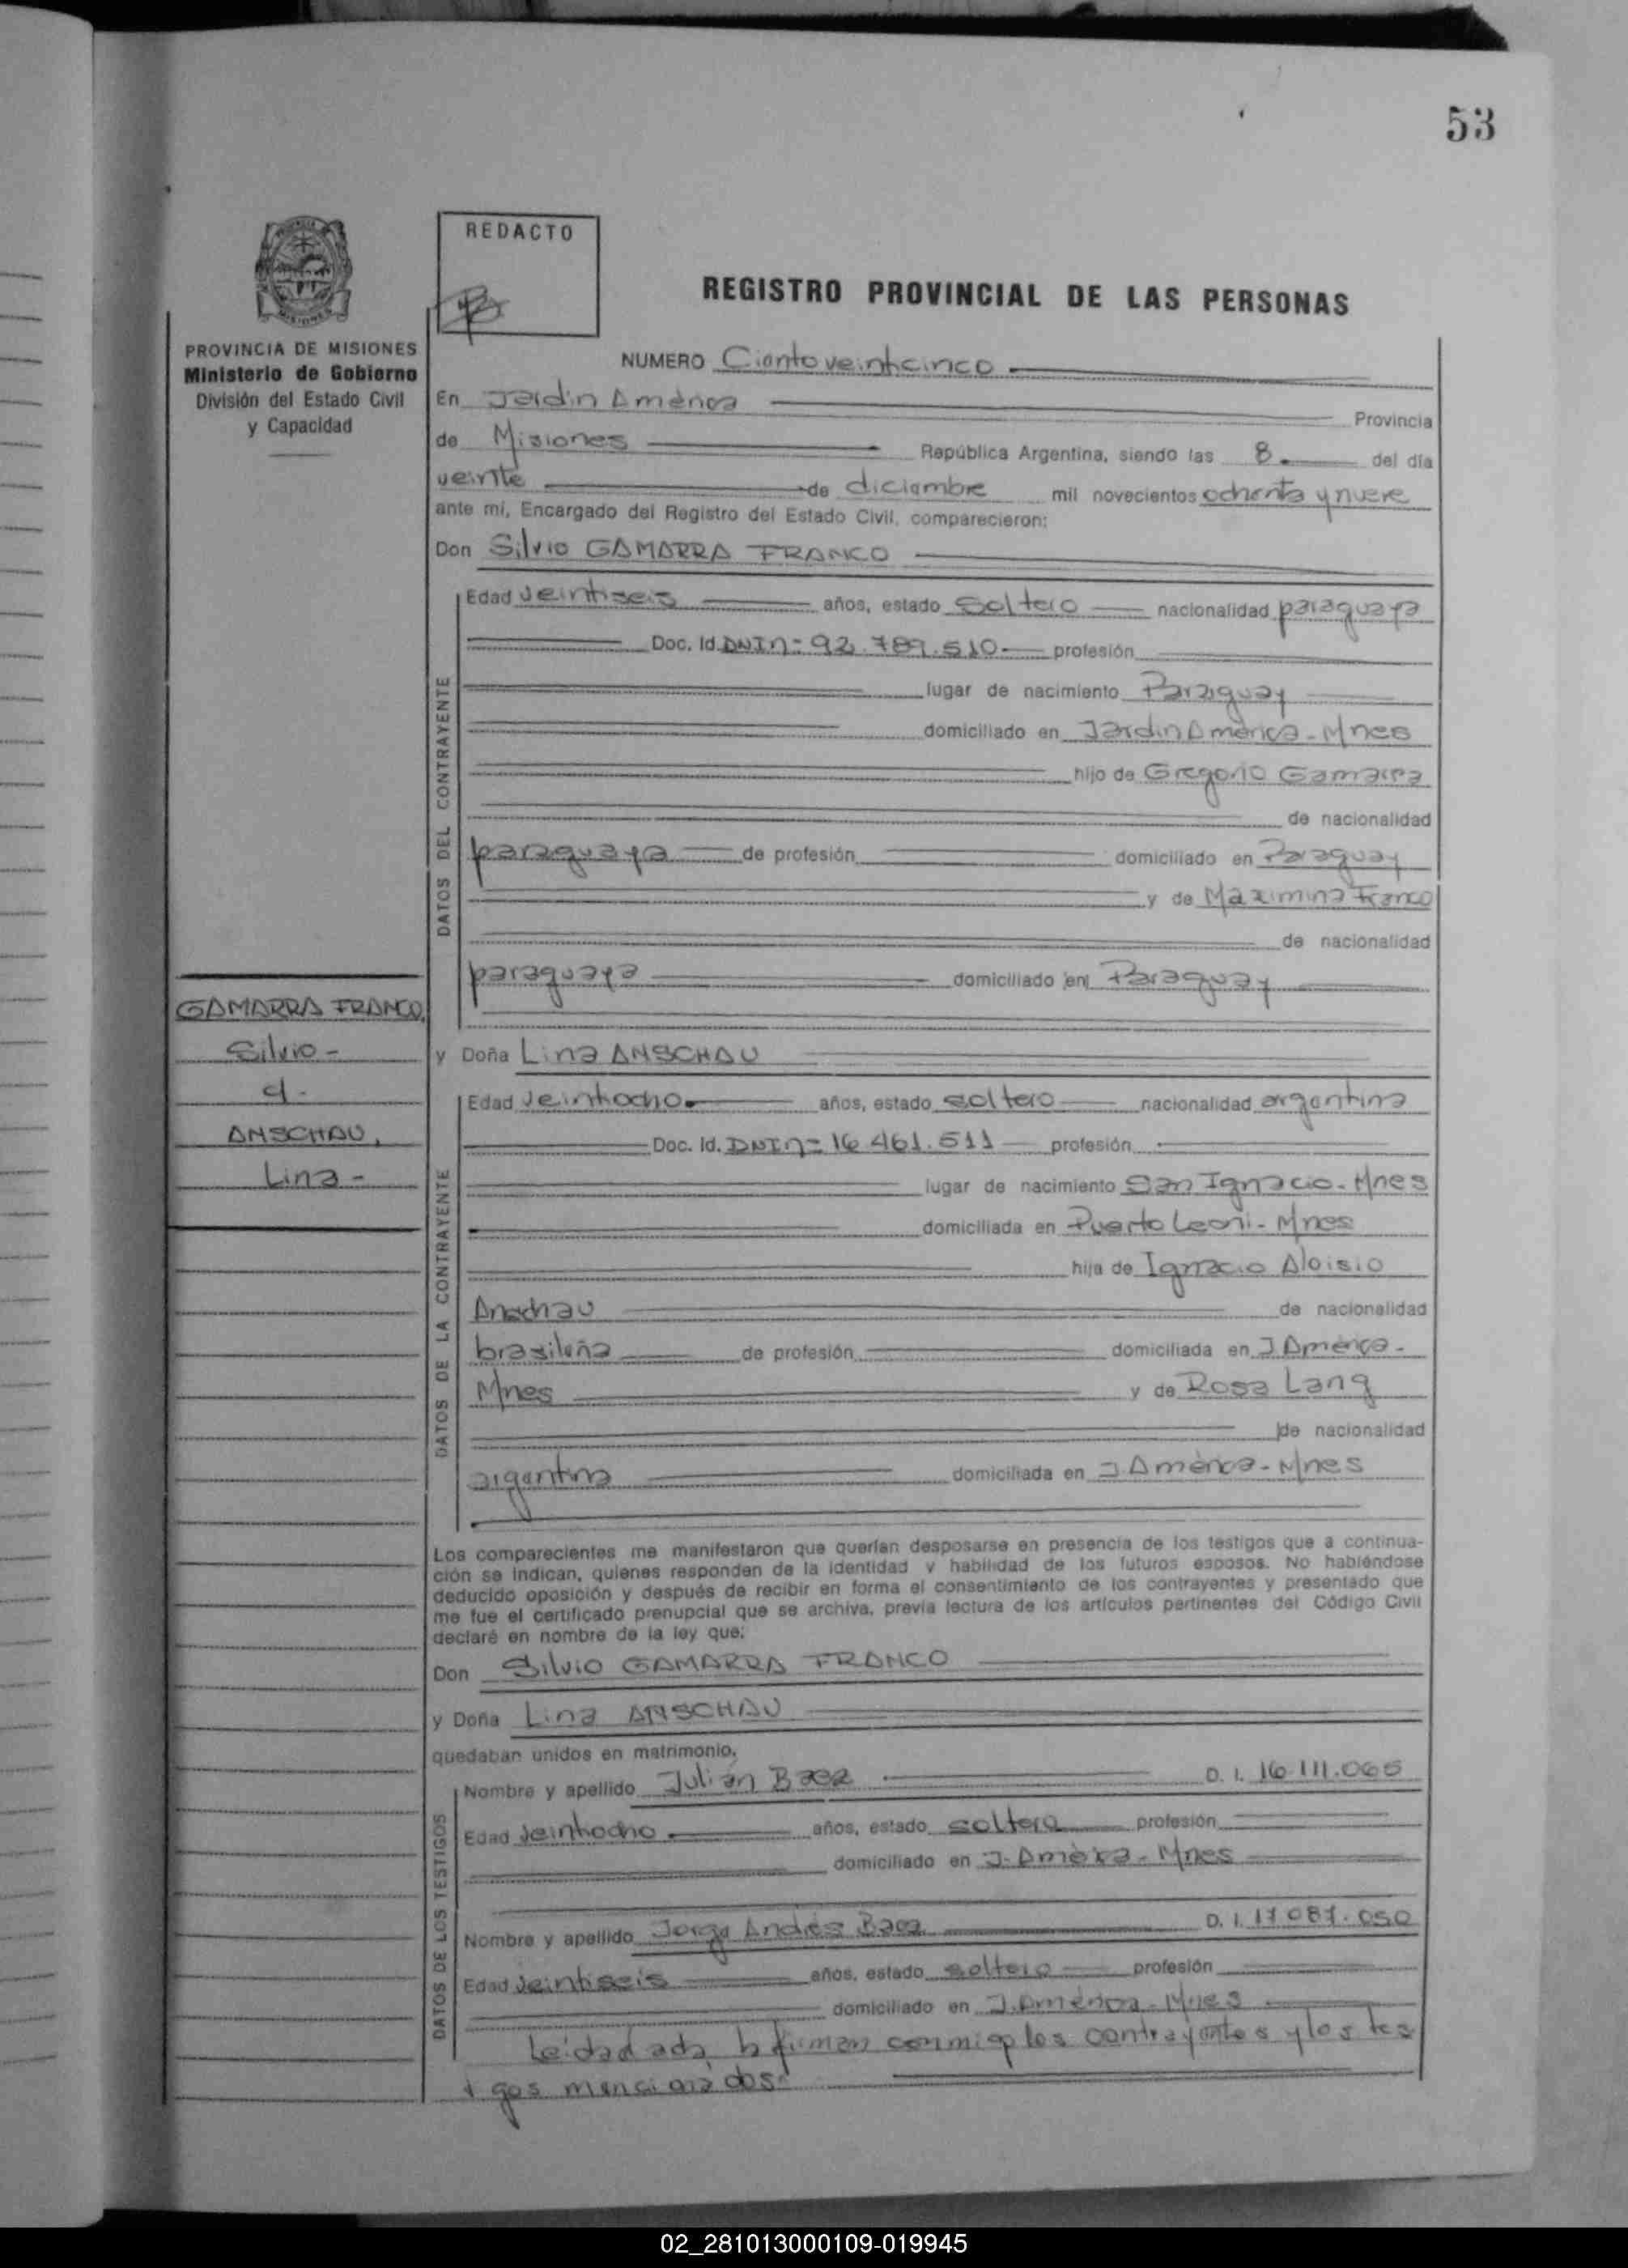 53
REDACTO
REGISTRO PROVINCIAL DE LAS PERSONAS
PROVINCIA DE MISIONES
Ministerio de Gobierno
División del Estado Civil
y Capacidad
NUMERO Ciento veinticinco
En Jardin América Provincia
de Misiones República Argentina, siendo las 8 del día
veinte de diciembre mil novecientos ochenta y nueve
ante mí, Encargado del Registro del Estado Civil, comparecieron:
Don Silvio GAMARRA FRANCO
DATOS DEL CONTRAYENTE
Edad veintiseis años, estado soltero nacionalidad paraguaya
Doc. Id. DNI n= 92.789.510 profesión
lugar de nacimiento Paraguay
domiciliado en Jardin América - Mnes
hijo de Gregorio Gamarra
de nacionalidad
paraguaya de profesión domiciliado en Paraguay
y de Maximina Franco
de nacionalidad
paraguaya domiciliado en Paraguay
GAMARRA FRANCO,
Silvio -
c/.
ANSCHAU,
Lina -
y Doña Lina ANSCHAU
DATOS DE LA CONTRAYENTE
Edad veintiocho años, estado soltero nacionalidad argentina
Doc. Id. DNI n= 16.461.511 profesión
lugar de nacimiento San Ignacio - Mnes
domiciliada en Puerto Leoni - Mnes
hija de Ignacio Aloisio
Anschau de nacionalidad
brasileña de profesión domiciliada en J. América -
Mnes y de Rosa Lang
de nacionalidad
argentina domiciliada en J. América - Mnes
Los comparecientes me manifestaron que querían desposarse en presencia de los testigos que a continua-
ción se indican, quienes responden de la identidad y habilidad de los futuros esposos. No habiéndose
deducido oposición y después de recibir en forma el consentimiento de los contrayentes y presentado que
me fue el certificado prenupcial que se archiva, previa lectura de los artículos pertinentes del Código Civil
declaré en nombre de la ley que:
Don Silvio GAMARRA FRANCO
y Doña Lina ANSCHAU
quedaban unidos en matrimonio.
DATOS DE LOS TESTIGOS
Nombre y apellido Julián Baez D. I. 16.111.065
Edad veintiocho años, estado soltero profesión
domiciliado en J. América - Mnes
Nombre y apellido Jorge Andrés Baez D. I. 17.087.050
Edad veintiseis años, estado soltero profesión
domiciliado en J. América - Mnes
Leída el acta, la firman conmigo los contrayentes y los tes
tigos mencionados
02_281013000109-019945